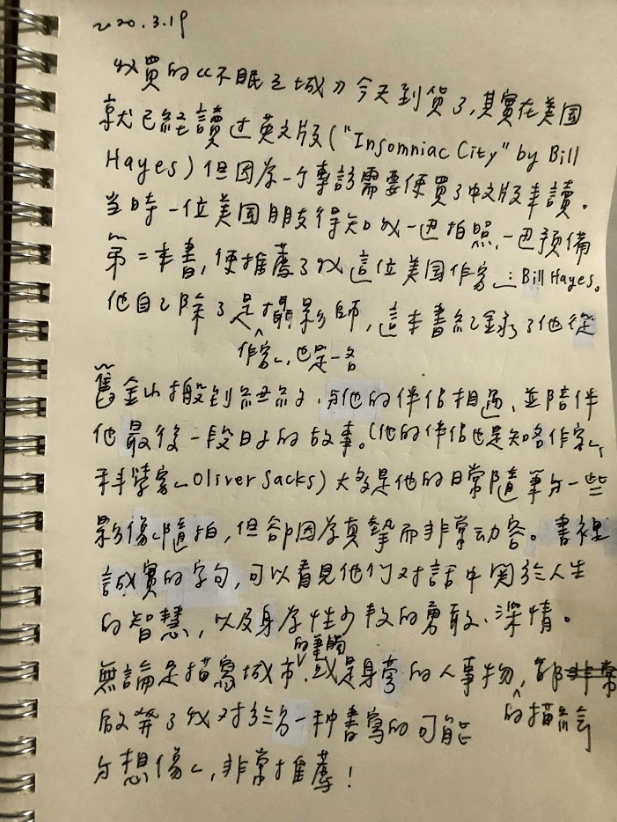 2020.3.19
我買的《不眠之城》今天到貨了,其實在美国
就已経讀过英文版("Insomniac City" by Bill
Hayes)但因為一个專訪需要便買了中文版来讀。
当時一位美国朋友得知我一边拍照、一边預備
第二本書,便推薦了我這位美国作家:Bill Hayes。
他自己除了是作家,也是一名攝影師,這本書紀錄了他從
舊金山搬到紐約、与他的伴侶相遇、並陪伴
他最後一段日子的故事。(他的伴侶也是知名作家、
科学家 Oliver Sacks)大多是他的日常隨筆与一些
影像隨拍,但卻因為真摯而非常动容。書裡
誠實的字句,可以看見他們对話中関於人生
的智慧,以及身為性少数的勇敢、深情。
無論是描寫城市的筆觸、或是身旁的人事物的描繪,都非常
啟発了我对於另一种書寫的可能
与想像,非常推薦!